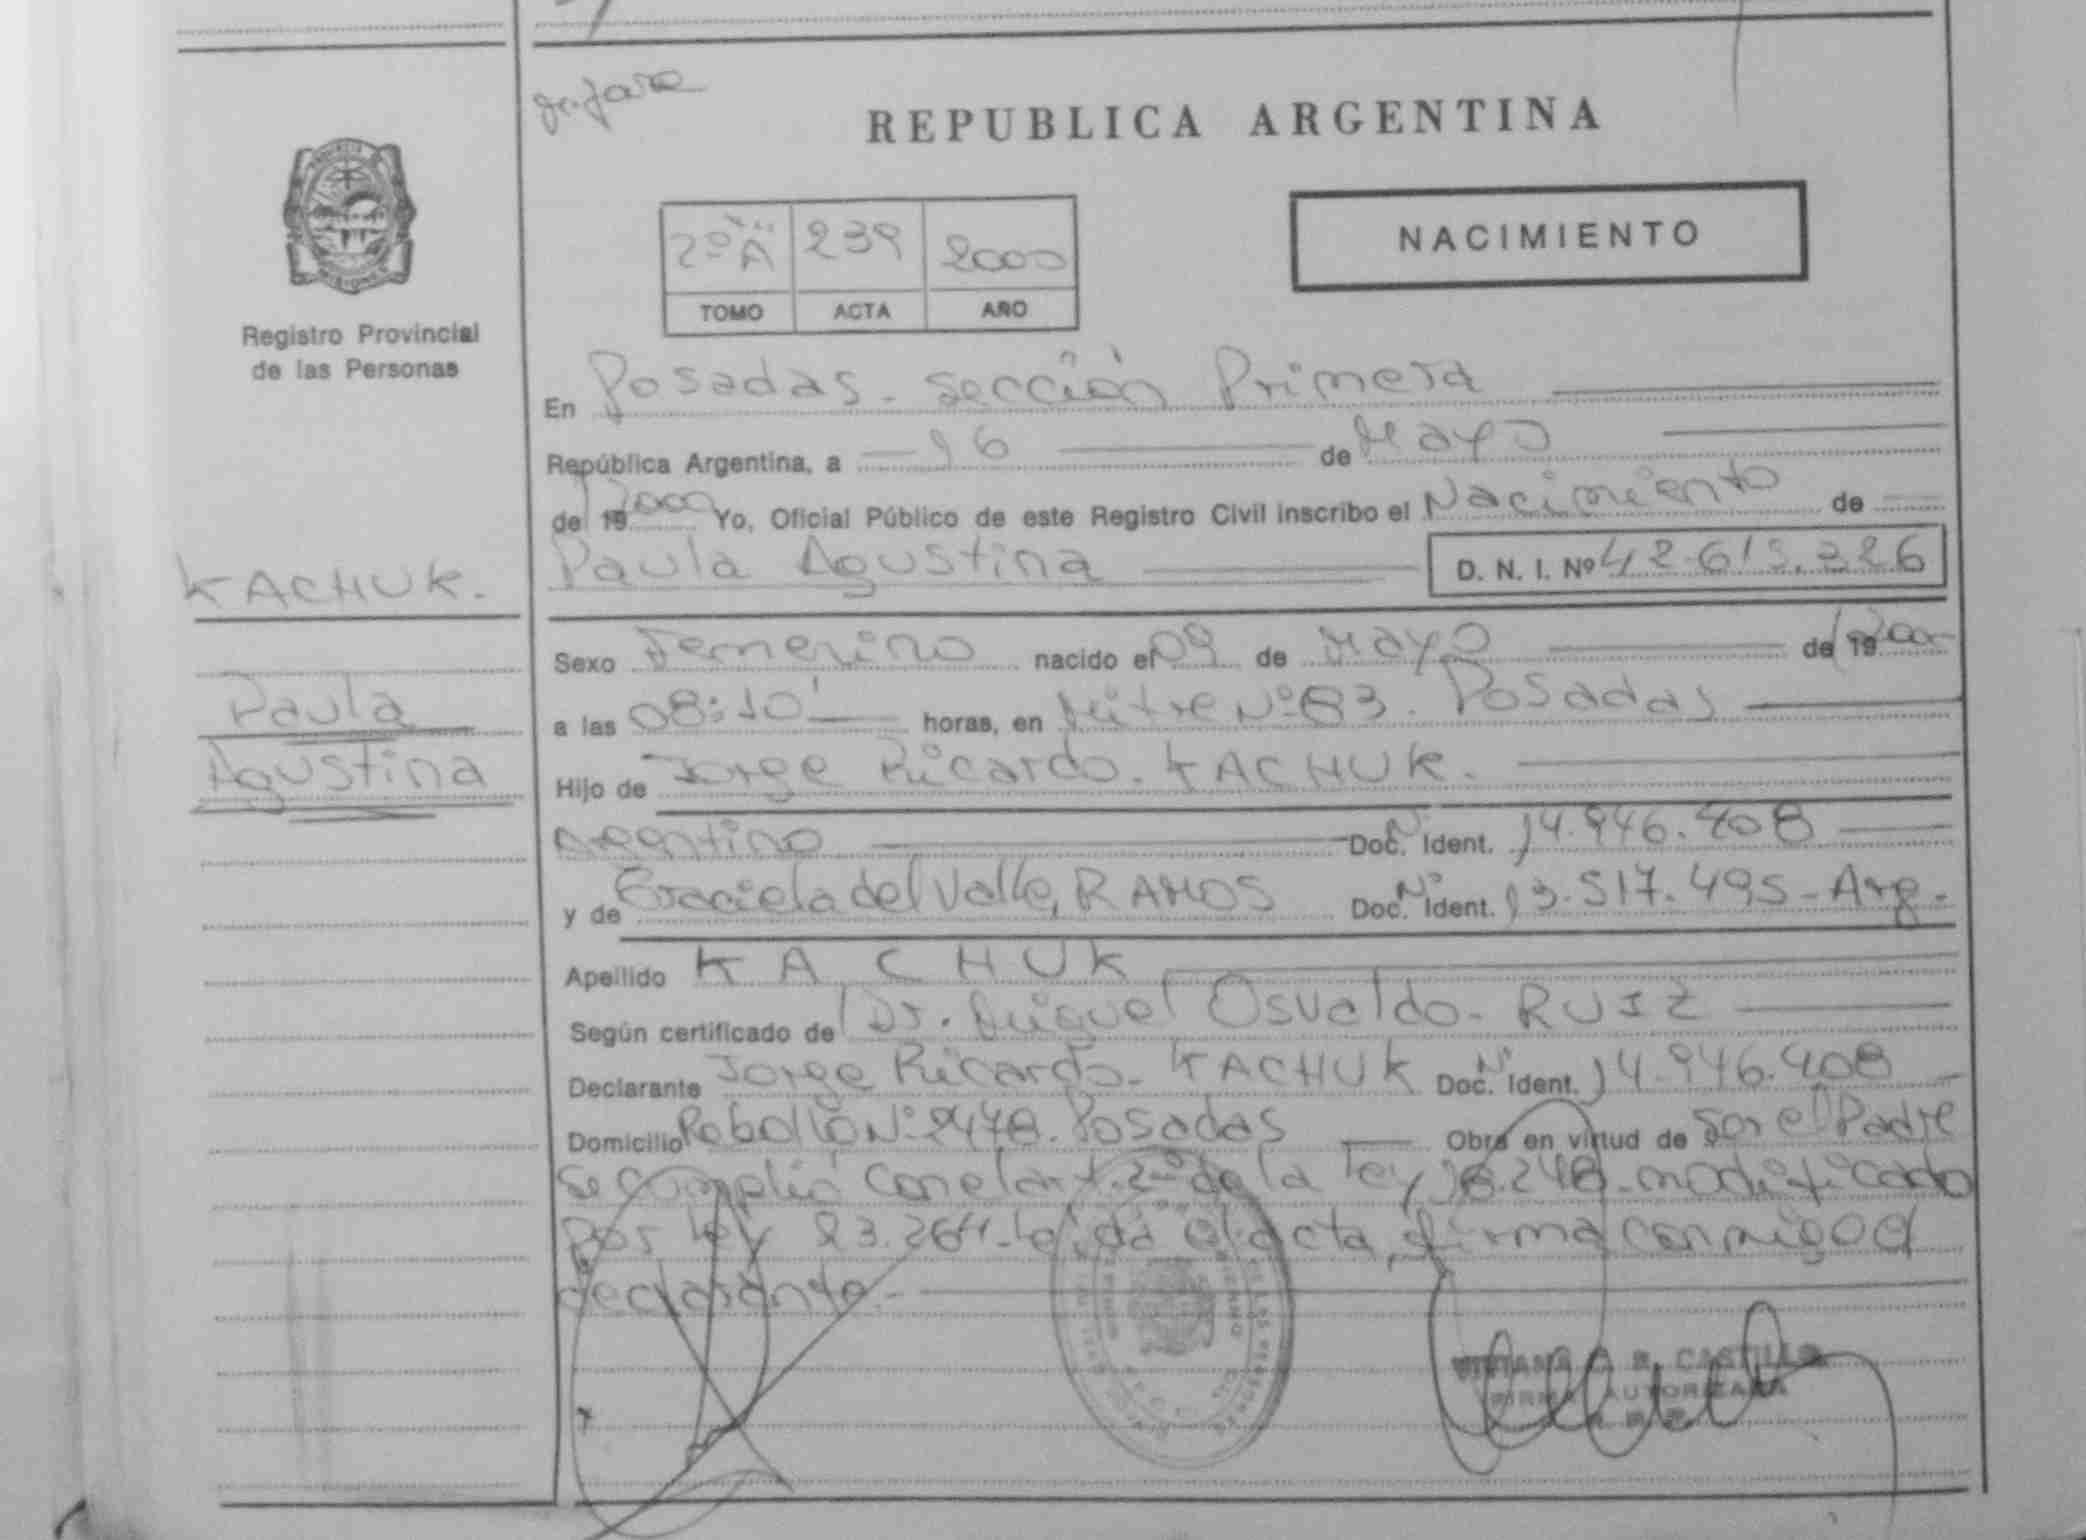 REPUBLICA ARGENTINA
2º A 239 2000
TOMO ACTA AÑO
NACIMIENTO
Registro Provincial
de las Personas
En Posadas - sección Primera
República Argentina, a 16 de Mayo
de 19 2000 Yo, Oficial Público de este Registro Civil inscribo el Nacimiento de
Paula Agustina D. N. I. Nº 42.615.226
KACHUK.
Paula
Agustina
Sexo Femenino nacido el 09 de Mayo de 19 2000
a las 08:10' horas, en Mitre Nº 83. Posadas
Hijo de Jorge Ricardo. KACHUK.
Argentino Doc. Nº Ident. 14.946.408
y de Graciela del Valle, RAMOS Doc. Nº Ident. 13.517.495 - Arg.
Apellido KACHUK
Según certificado de Dr. Miguel Osvaldo - RUIZ
Declarante Jorge Ricardo - KACHUK Doc. Nº Ident. 14.946.408
Domicilio Nº 2478. Posadas Obra en virtud de Ser el Padre
se cumplió con el art. 2º de la ley 18.248 - modificado
por ley 23.264 - leída el acta, firma conmigo el
declarante. -
CASTILLO
FIRMA AUTORIZADA